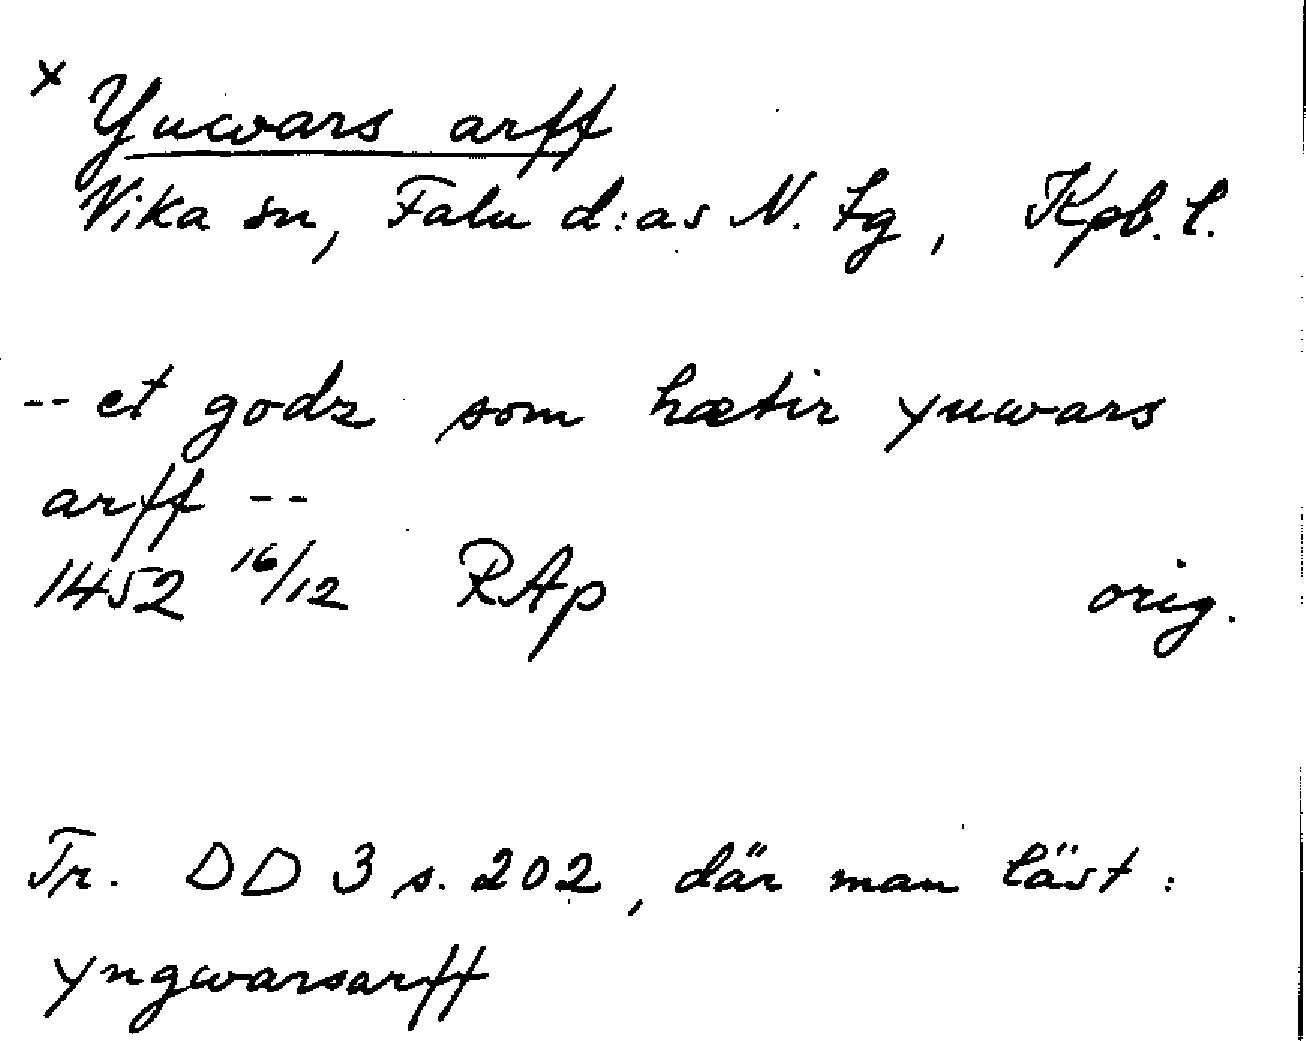 x Yuwars arff
Vika sn, Falu d:as N. Lg, Kpb. l.
-- et godz som hætir yuwars
arff --
1452 16/12 RAp orig.
Tr. DD 3 s. 202, där man läst:
yngwarsarff